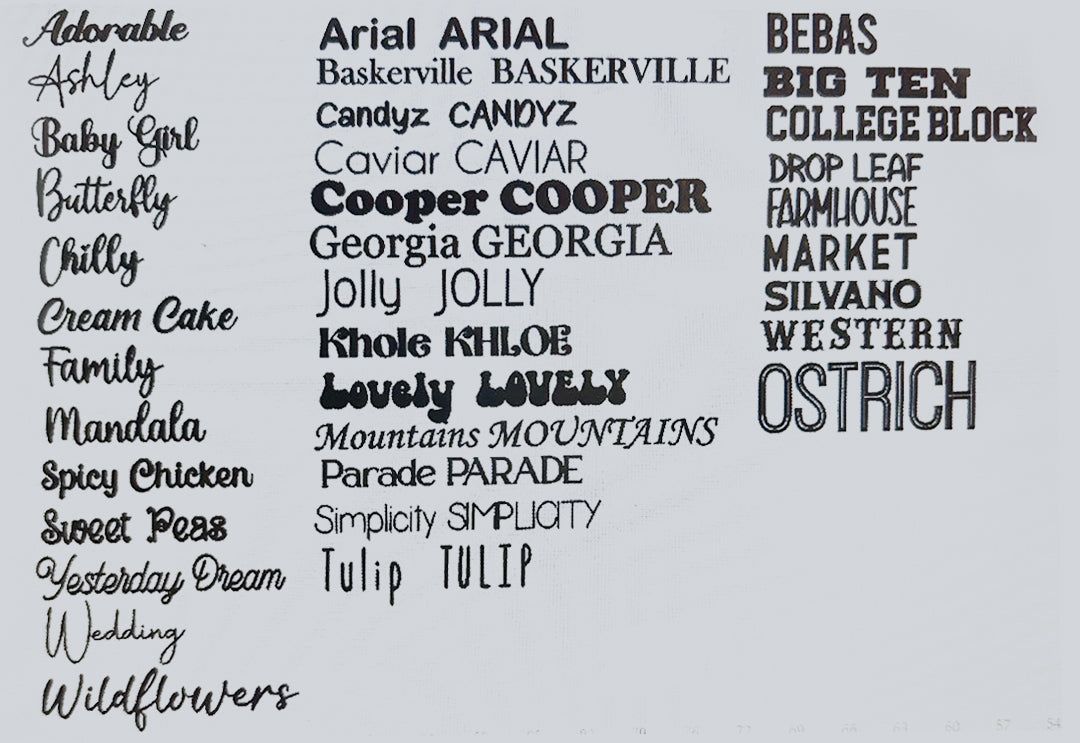 Adorable
Ashley
Baby Girl
Butterfly
Chilly
Cream Cake
Family
Mandala
Spicy Chicken
Sweet Peas
Yesterday Dream
Wedding
Wildflowers
Arial ARIAL
Baskerville BASKERVILLE
Candyz CANDYZ
Caviar CAVIAR
Cooper COOPER
Georgia GEORGIA
Jolly JOLLY
Khole KHLOE
Lovely LOVELY
Mountains MOUNTAINS
Parade PARADE
Simplicity SIMPLICITY
Tulip TULIP
BEBAS
BIG TEN
COLLEGE BLOCK
DROP LEAF
FARMHOUSE
MARKET
SILVANO
WESTERN
OSTRICH
60 57 54